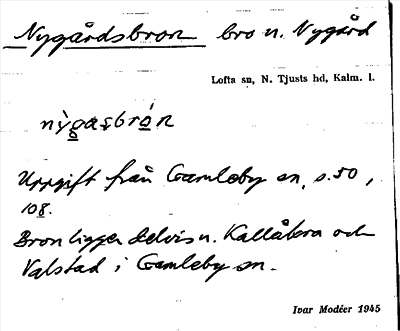 Nygårdsbron bro u. Nygård
Lofta sn, N. Tjusts hd, Kalm. l.
nỳgaşbrón
Uppgift från Gamleby sn, s. 50,
108.
Bron ligger delvis u. Kallåkra och
Valstad i Gamleby sn.
Ivar Modéer 1945